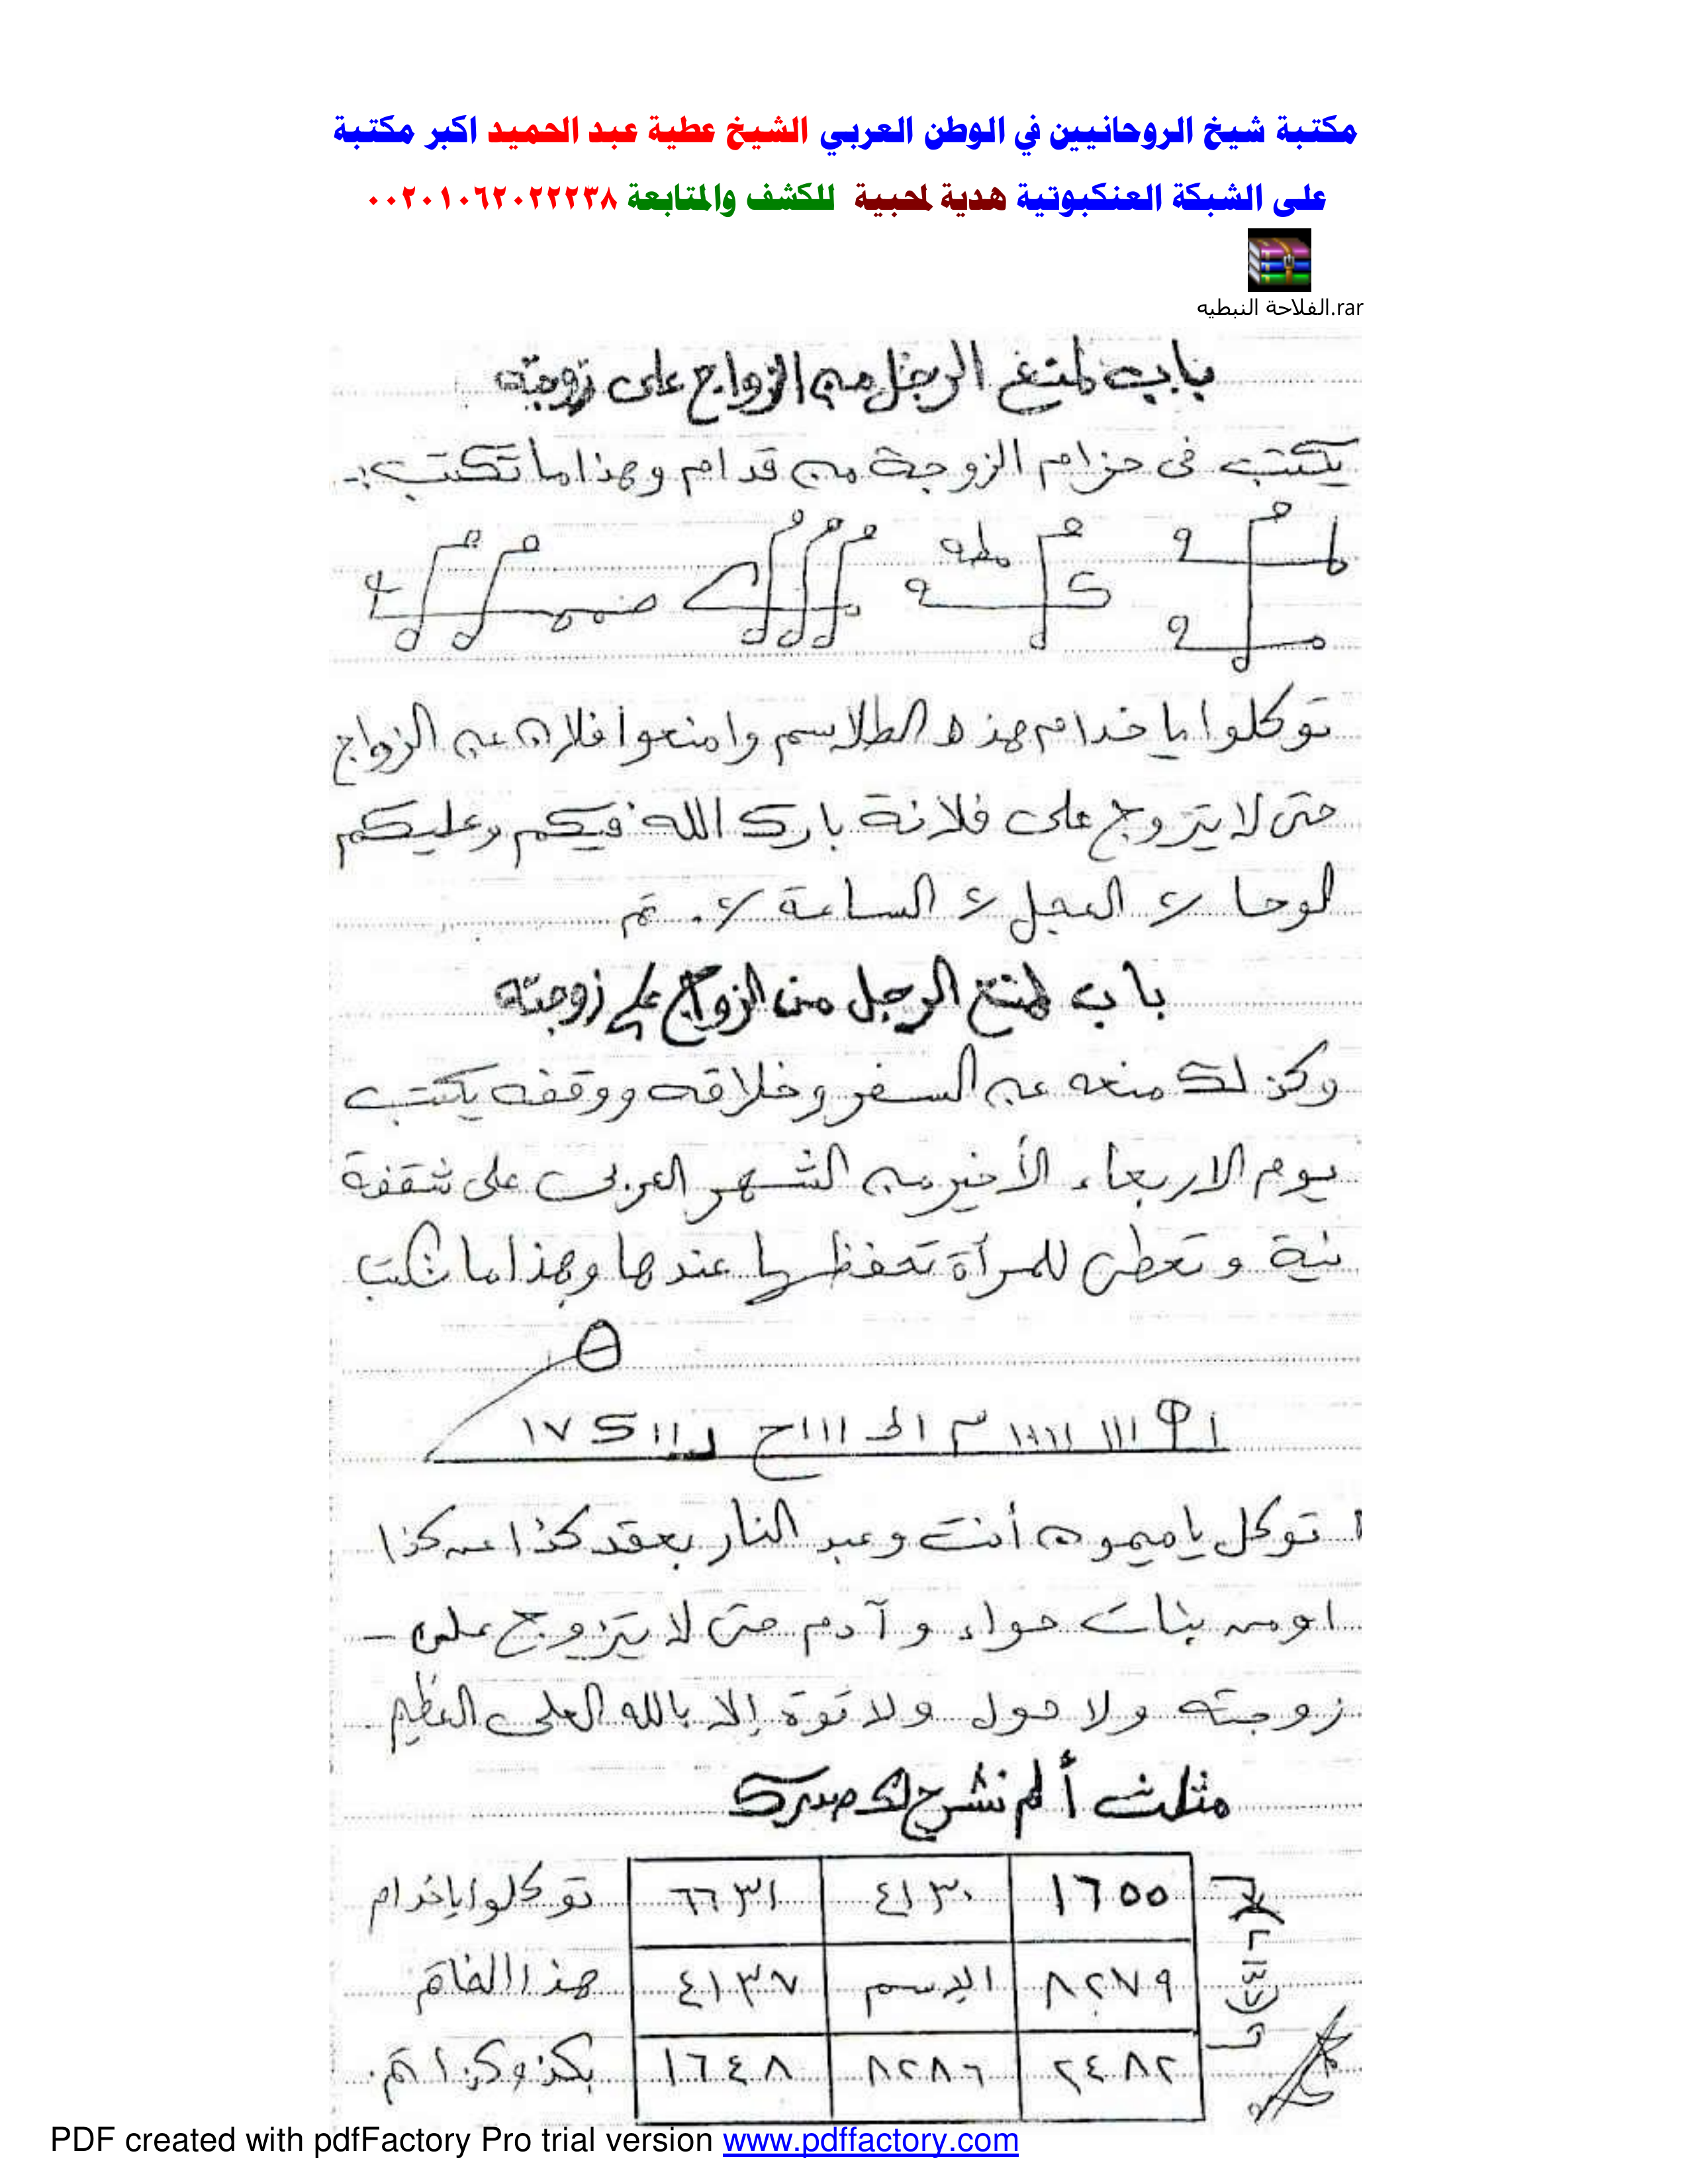 مكتبة شيخ الروحانيين في الوطن العربي الشيخ عطية عبد الحميد اكبر مكتبة
على الشبكة العنكبوتية هدية لمحبية للكشف والمتابعة ٠٠٢٠١٠٦٢٠٢٢٢٣٨
الفلاحة النبطيه.rar
باب لمنع الرجل من الزواج على زوجته
يكتب فى حزام الزوجة من قدام وهذا ما تكتب :-
توكلوا يا خدام هذه الطلاسم وامنعوا فلان عن الزواج
حتى لا يتزوج على فلانة بارك الله فيكم وعليكم
لوحا ٢ العجل ٢ الساعة ٢. تم
باب لمنع الرجل من الزواج على زوجته
وكذلك منعه عن السفر وخلافه ووقفه يكتب
يوم الاربعاء الأخير من الشهر العربى على شقفة
نية وتعطى للمرآة تحفظها عندها وهذا ما تكتب
توكل يا ميمون أنت وعبد النار بعقد كذا عن كذا
او من بنات حواء وآدم حتى لا يتزوج على -
زوجته ولا حول ولا قوة إلا بالله العلى العظيم
مثلث ألم نشرح لك صدرك
١٦٥٥ ٤١٣٠ ٦٦٣١ توكلوا يا خدام
٨٢٧٩ الإسم ٤١٣٧ هذا الخاتم
٢٤٨٢ ٨٢٨٦ ١٦٤٨ بكذ وكذا تم.
PDF created with pdfFactory Pro trial version www.pdffactory.com